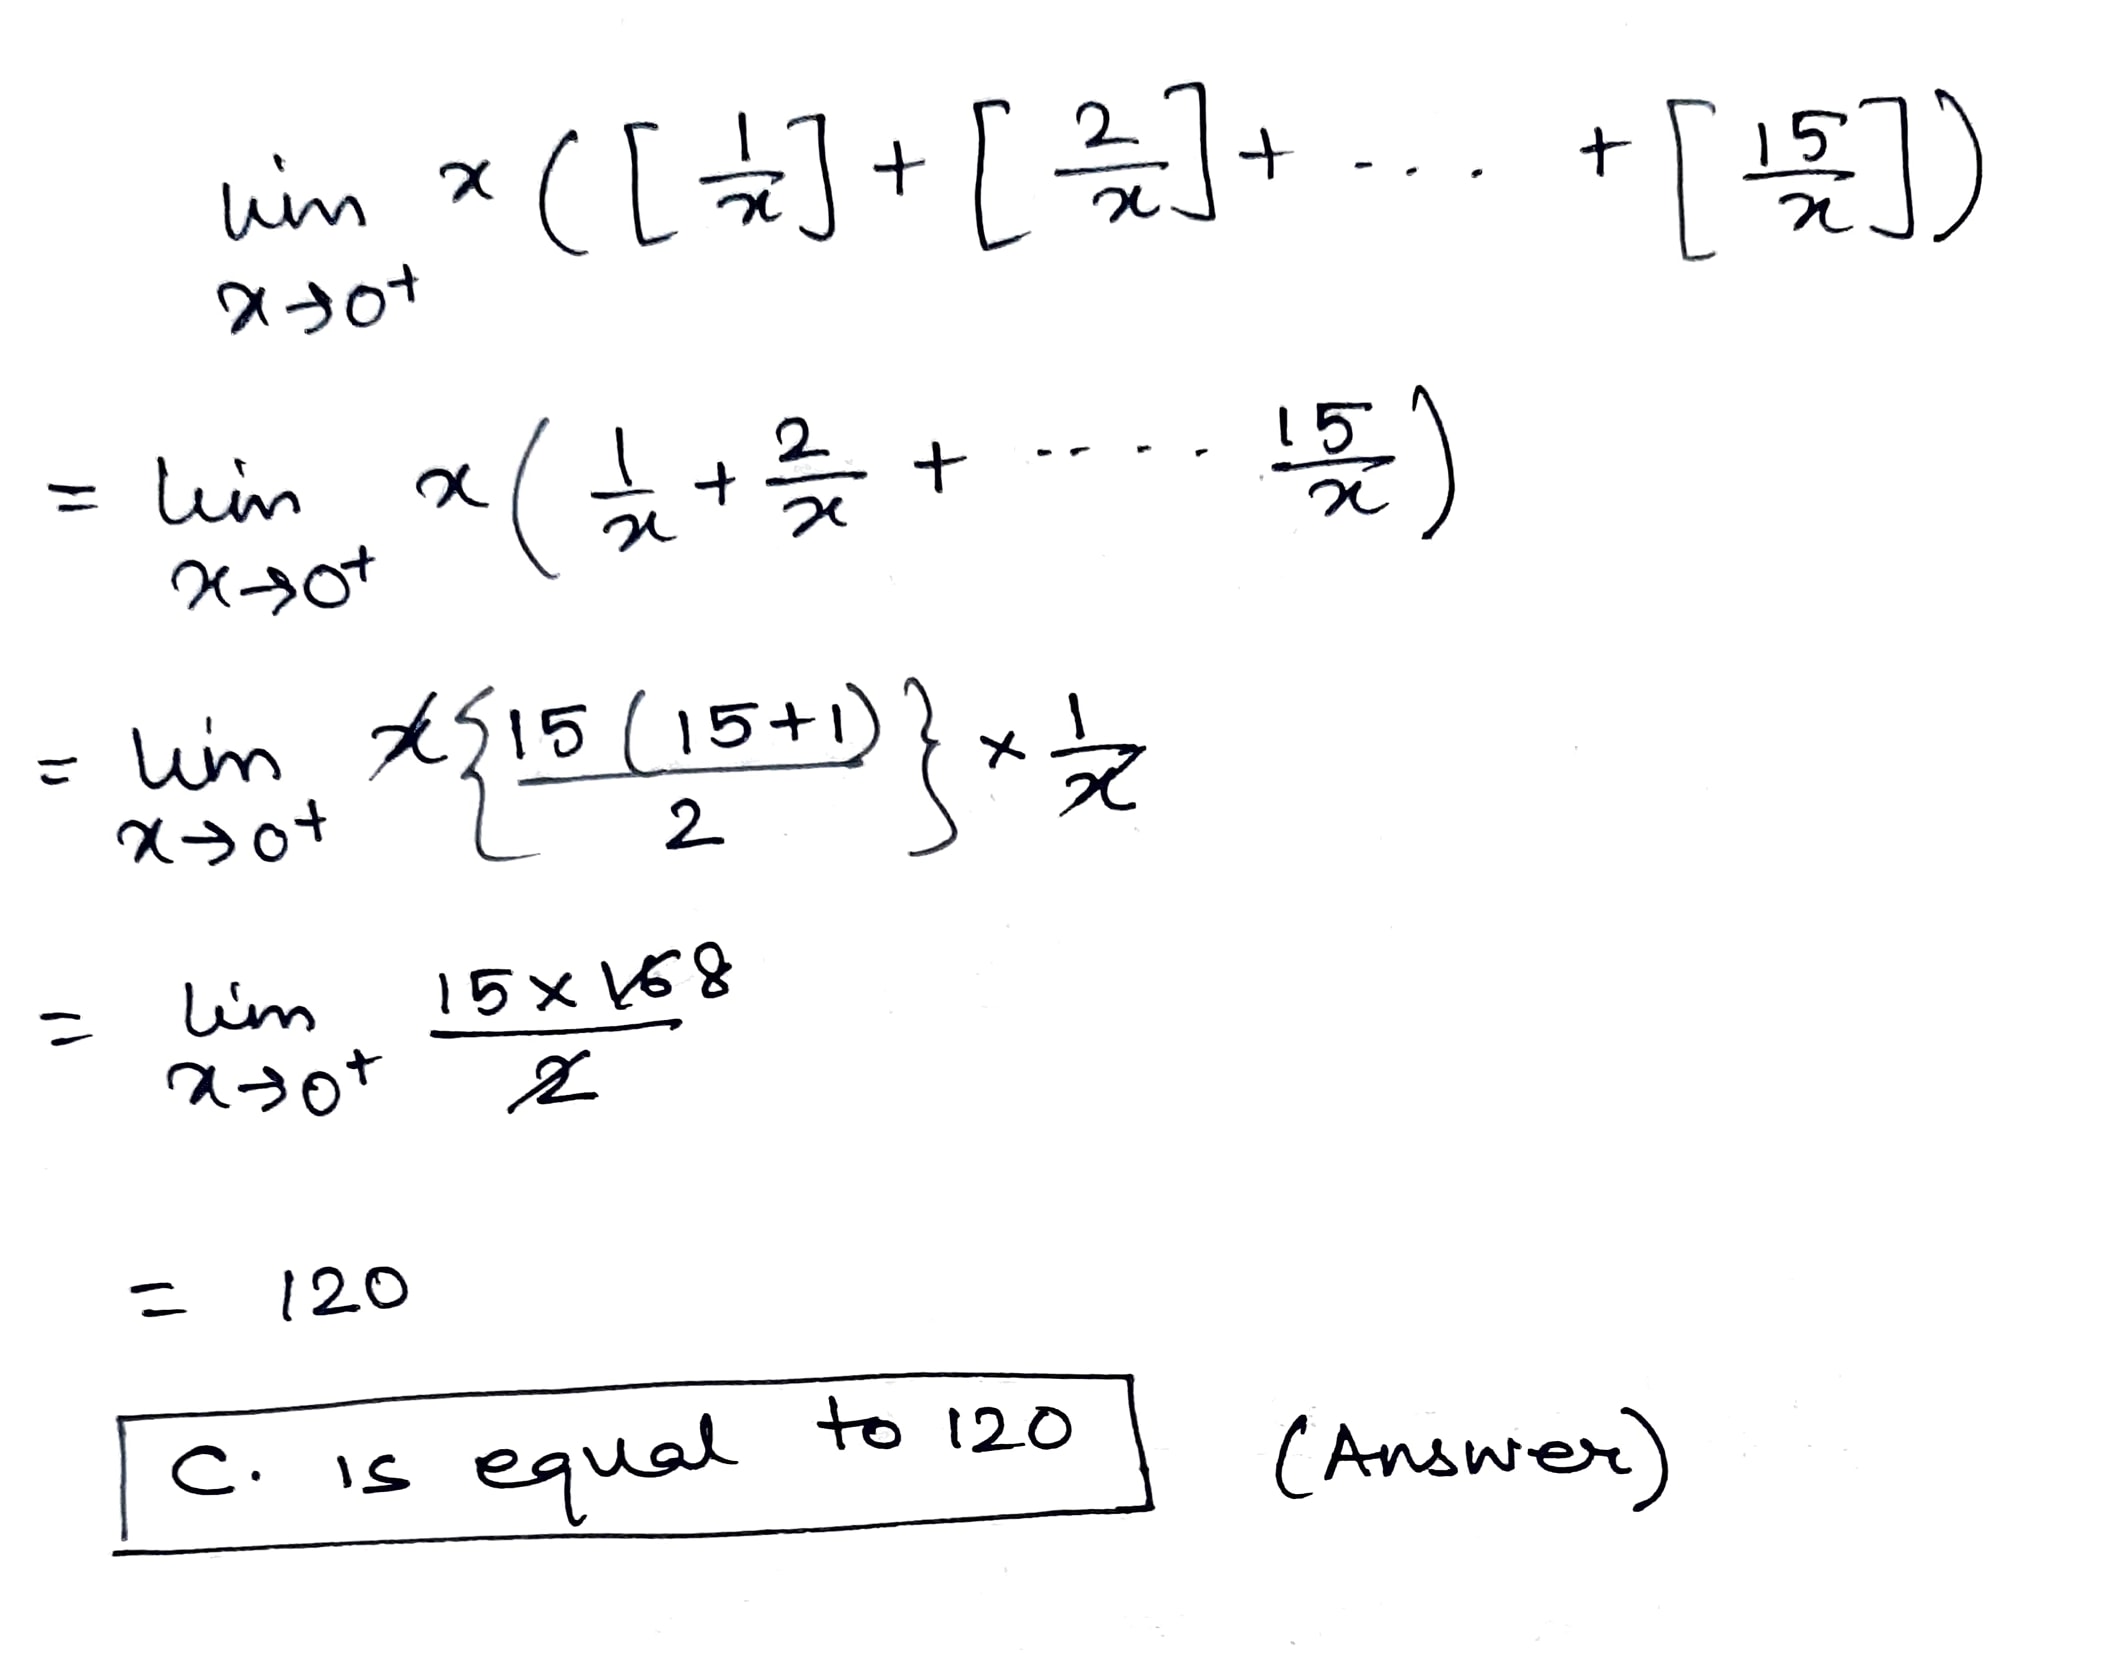 lim x→0+ x ( [ 1/x ] + [ 2/x ] + .... + [ 15/x ] )
= lim x→0+ x ( 1/x + 2/x + ..... 15/x )
= lim x→0+ x { 15 (15+1) / 2 } × 1/x
= lim x→0+ 15 × 16 8 / 2
= 120
C. is equal to 120 (Answer)